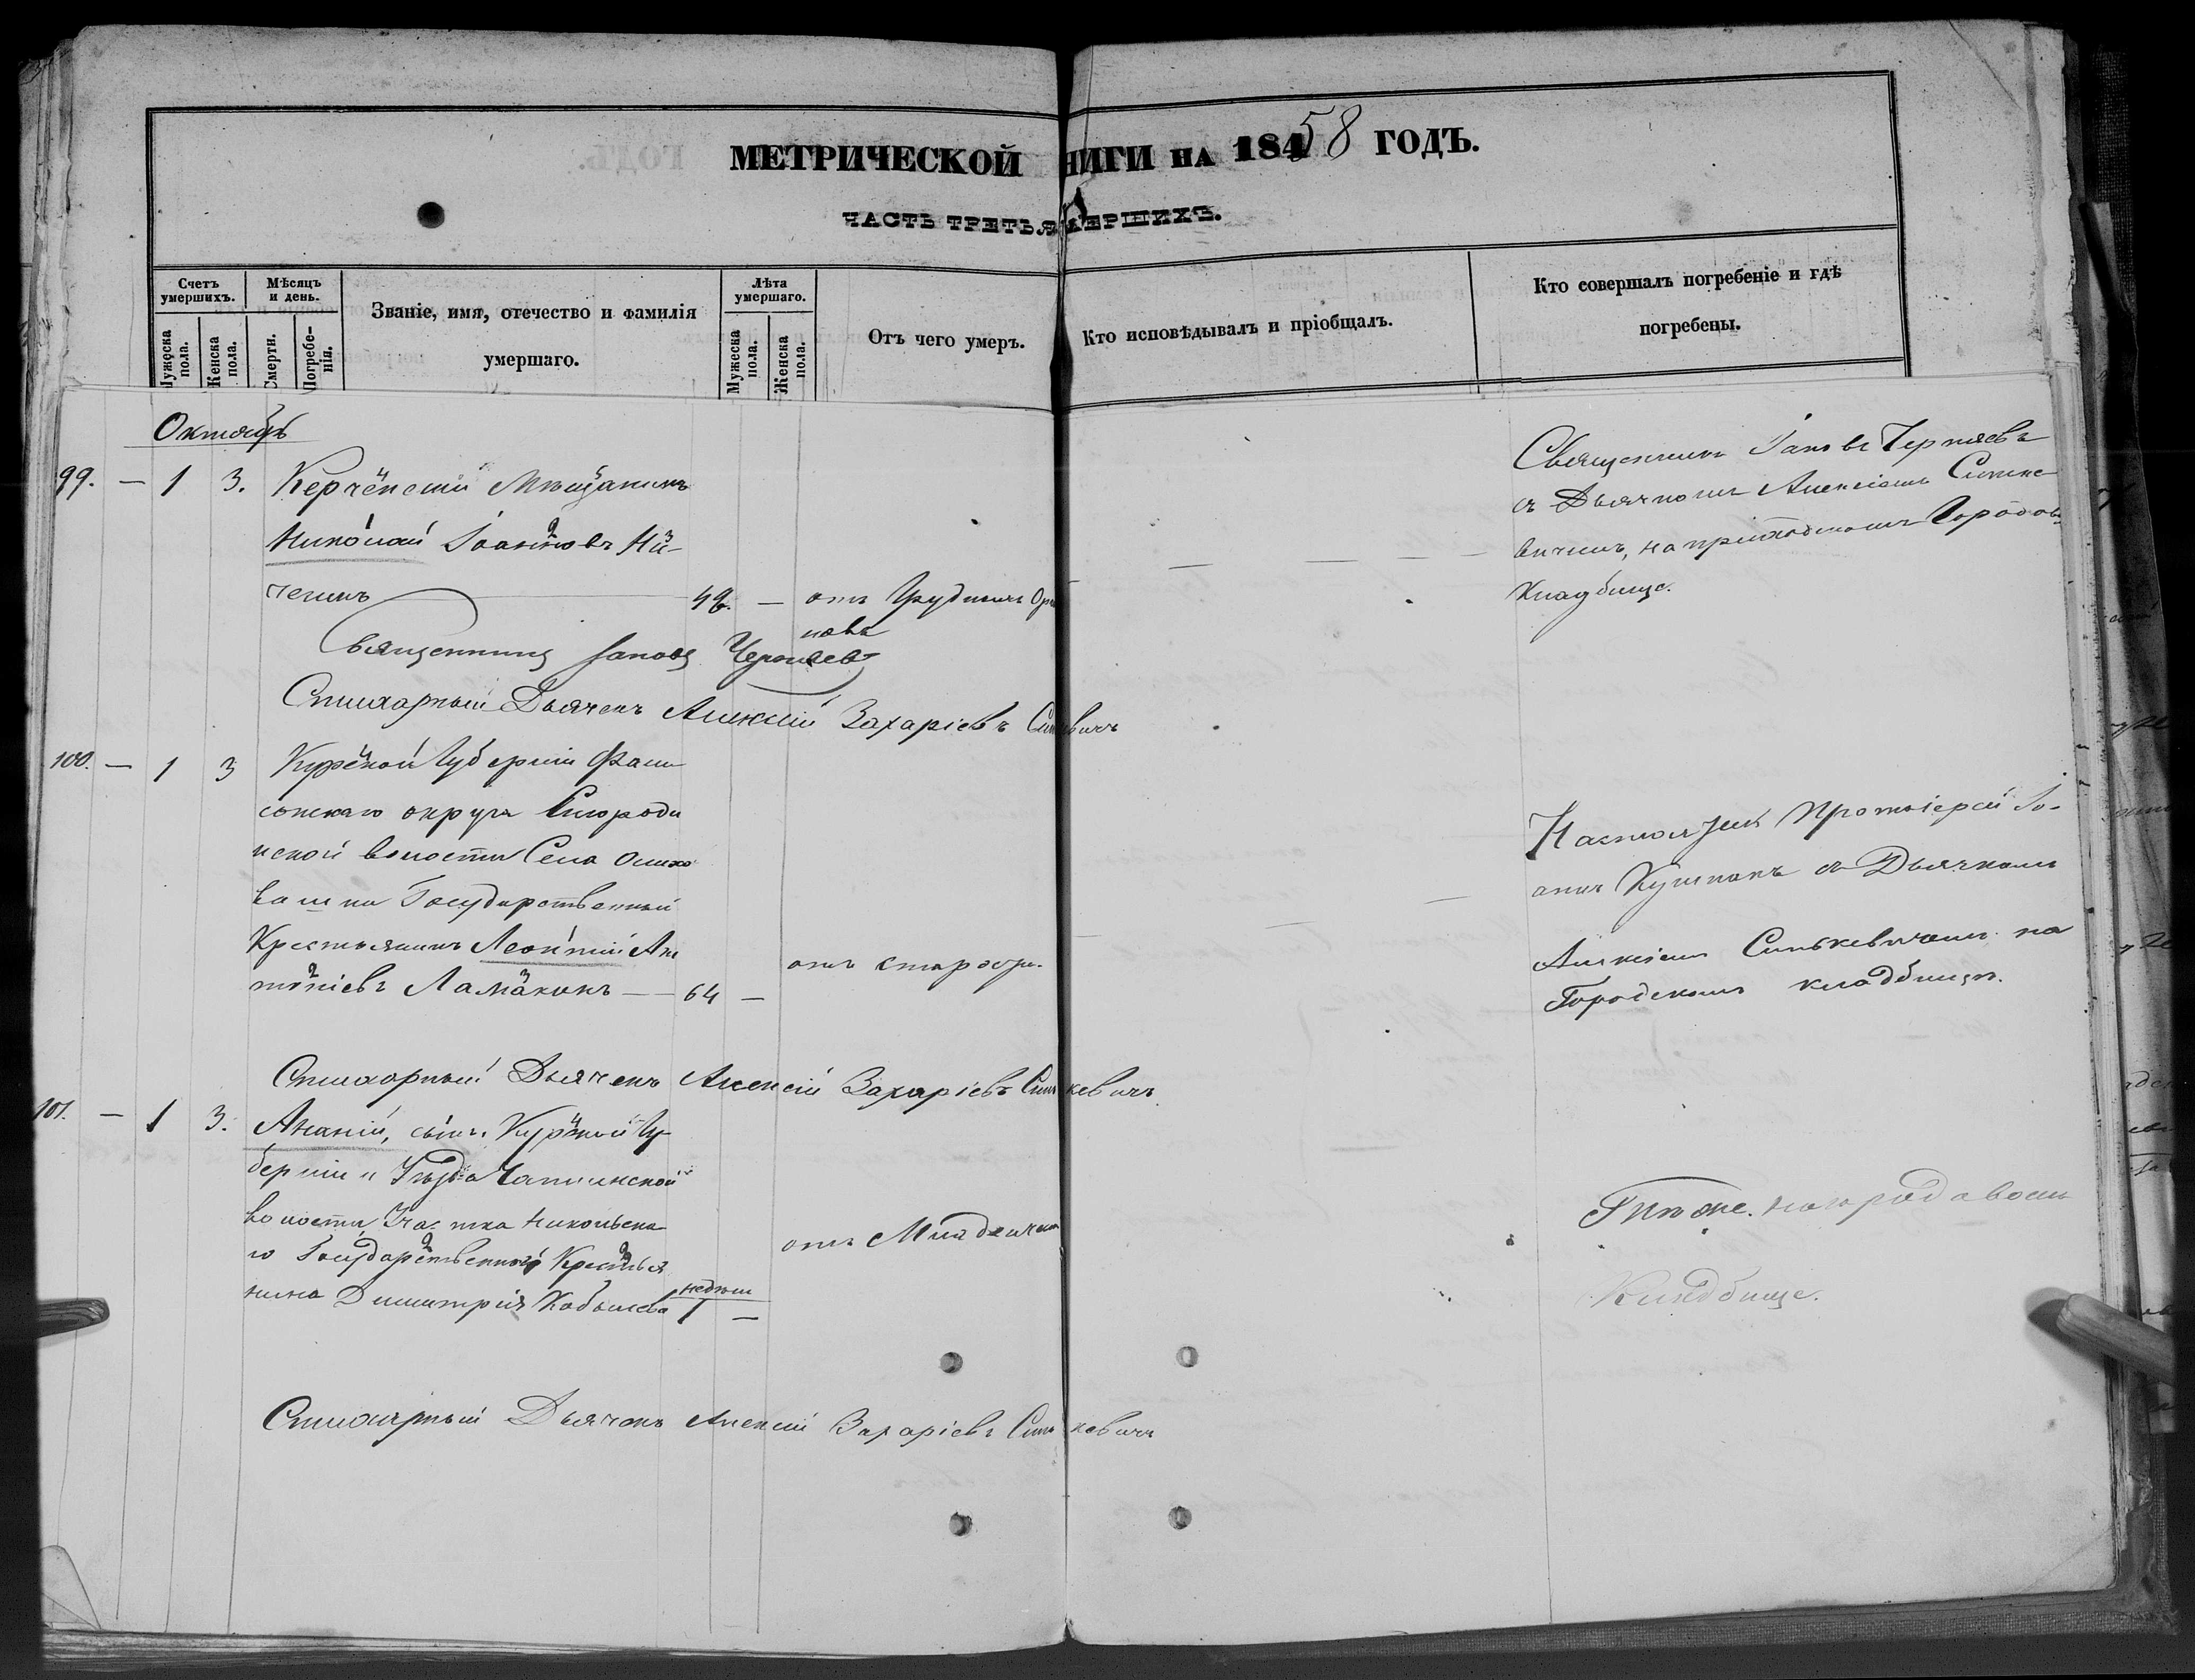 МЕТРИЧЕСКОЙ НИГИ НА 18458 ГОДЪ.
ЧАСТЬ ТРЕТЬЯ МЕРШИХЪ.
Счетъ умершихъ.
Мужеска пола.
Женска пола.
Мѣсяцъ и день.
Смерти.
Погребе-
нія.
Званіе, имя, отечество и фамилія
умершаго.
Лѣта умершаго.
Мужеска пола.
Женска пола.
Отъ чего умеръ.
Кто исповѣдывалъ и пріобщалъ.
Кто совершалъ погребеніе и гдѣ
погребены.
Октябрь
99. — 1 3. Керченскій Мѣщанинъ
Николай Іоанновъ
49. — отъ Грудныхъ
Священникъ Іаковъ Черняевъ
съ Дьячкомъ Алексіемъ Синке
вичемъ, на приходскомъ Городов
Кладбище.
Священникъ Іаковъ Черняевъ
Стихарный Дьячекъ Алексій Захаріевъ
100. — 1 3 Курской Губерніи
округа
волости Села
Государственный
Крестьянинъ Леонтій Ан
тоніевъ Ламакинъ — 64 —
отъ старости.
Настоятель Протоіерей Іо-
аннъ съ Дьячкомъ
Алексіемъ Синькевичемъ на
Городскомъ кладбищѣ.
Стихарный Дьячекъ Алексій Захаріевъ Синькевичъ
101. — 1 3. Ананій, сынъ Курской Гу
берніи и Уѣзда
волости, Участка Никольска
го Государственнаго Крестья
нина Димитрія Кобылева
недѣли
1 —
отъ Младенческ
Тѣ же. на городовомъ
Кладбище.
Стихарный Дьячекъ Алексій Захаріевъ Синькевичъ